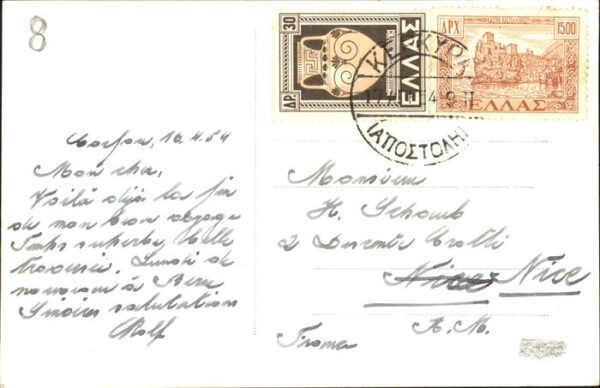 8
30
ΔΡ.
ΕΛΛΑΣ
ΔΡΧ
1500
ΕΛΛΑΣ
ΚΕΡΚΥΡΑ
(ΑΠΟΣΤΟΛΗ)
Corfou, 16.4.54
Mon cher,
Voilà déjà la fin
de mon beau voyage
Temps superbe, belle
traversée. Lundi de
nouveau à Berne
Sincères salutations
Rolf
Monsieur
H. Schaub
2 Descente Crotti
Nice Nice
A.M.
France